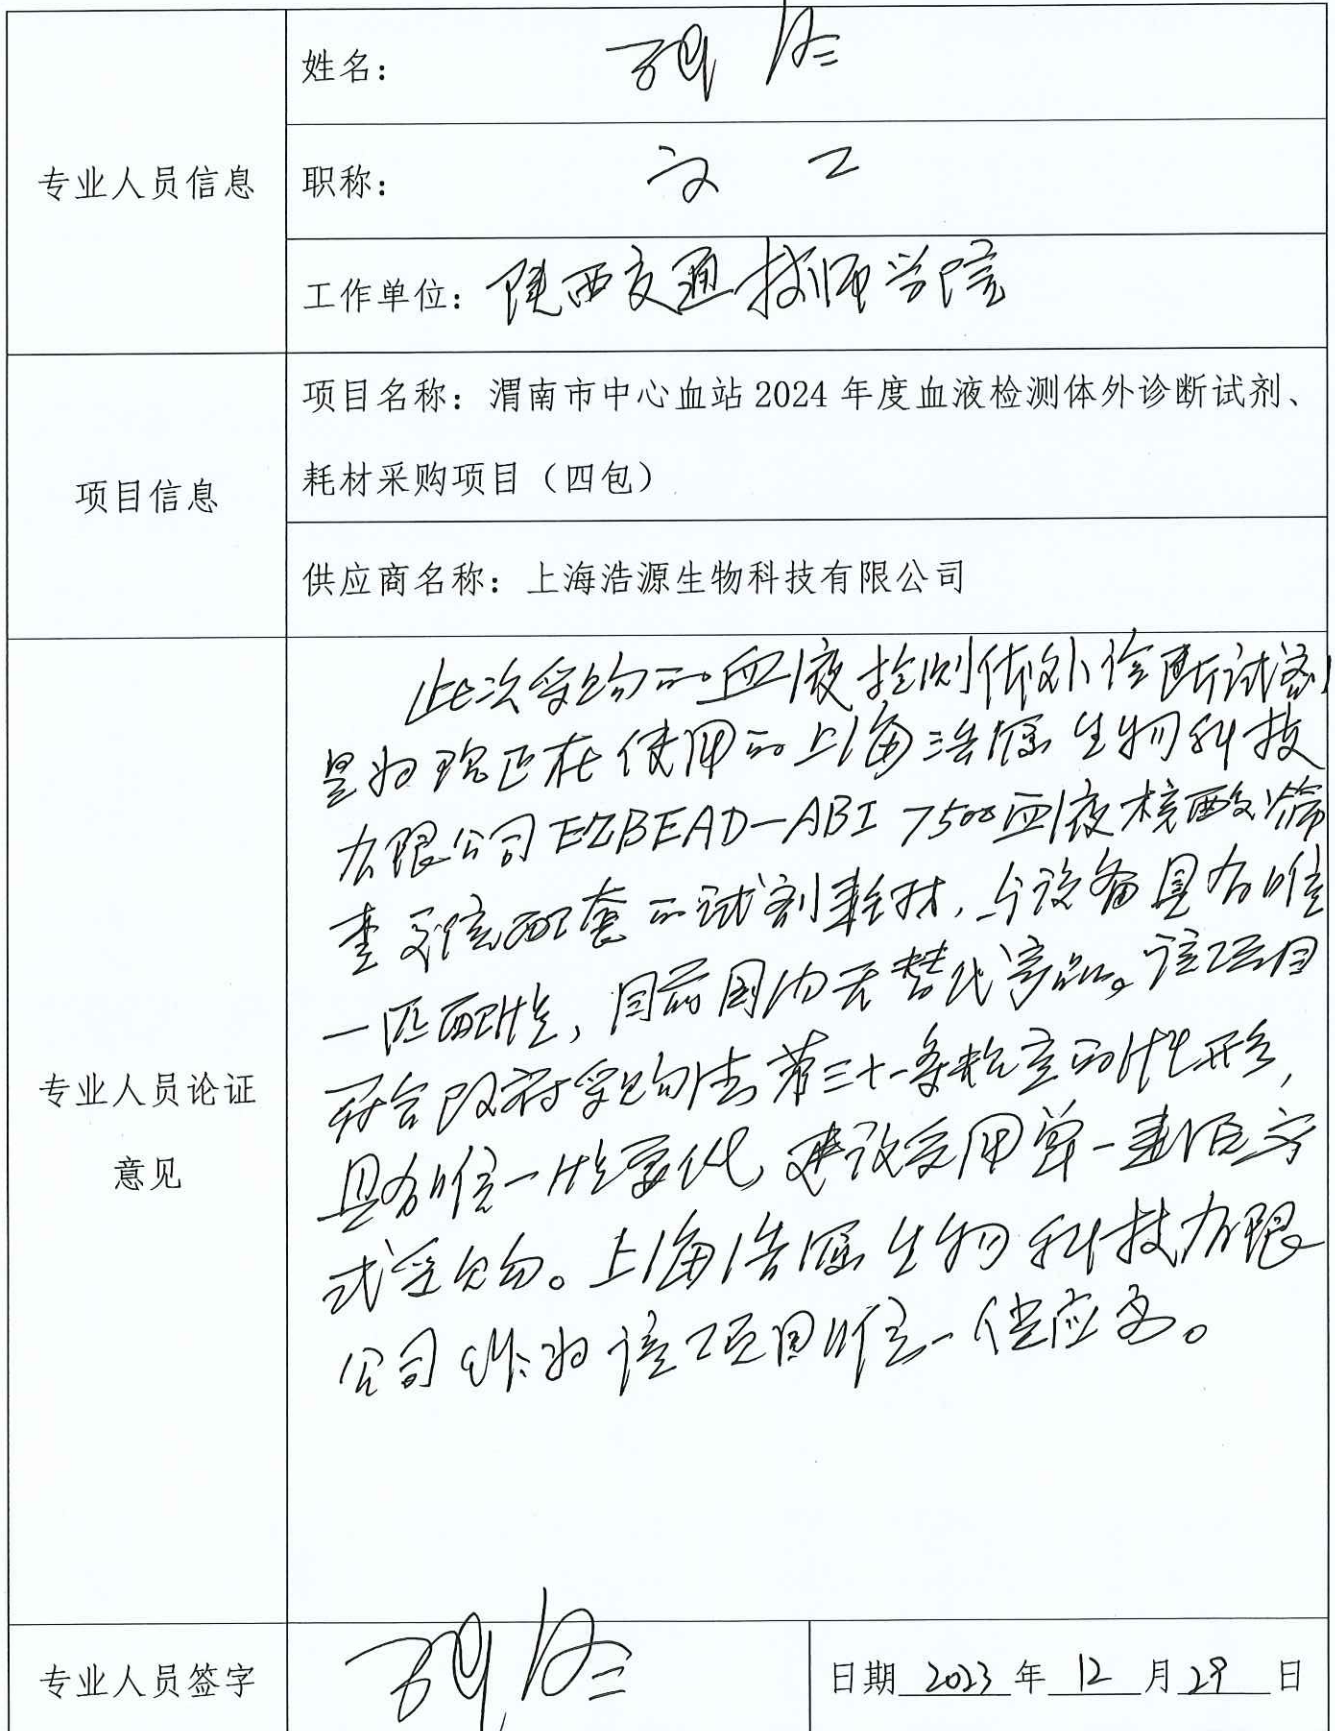 姓名：
专业人员信息
职称：
工作单位：陕西交通技师学院
项目名称：渭南市中心血站 2024 年度血液检测体外诊断试剂、
耗材采购项目（四包）
项目信息
供应商名称：上海浩源生物科技有限公司
此次采购的血液检测体外诊断试剂
是为现正在使用的上海浩源生物科技
有限公司EZBEAD-ABI 7500血液核酸筛
查系统配套的试剂耗材，与设备具有唯
一匹配性，目前国内无替代产品。该项目
符合政府采购法第三十一条规定的情形，
具有唯一性要求，建议采用单一来源方
式采购。上海浩源生物科技有限
公司作为该项目唯一供应商。
专业人员论证
意见
专业人员签字
日期 2023 年 12 月 29 日